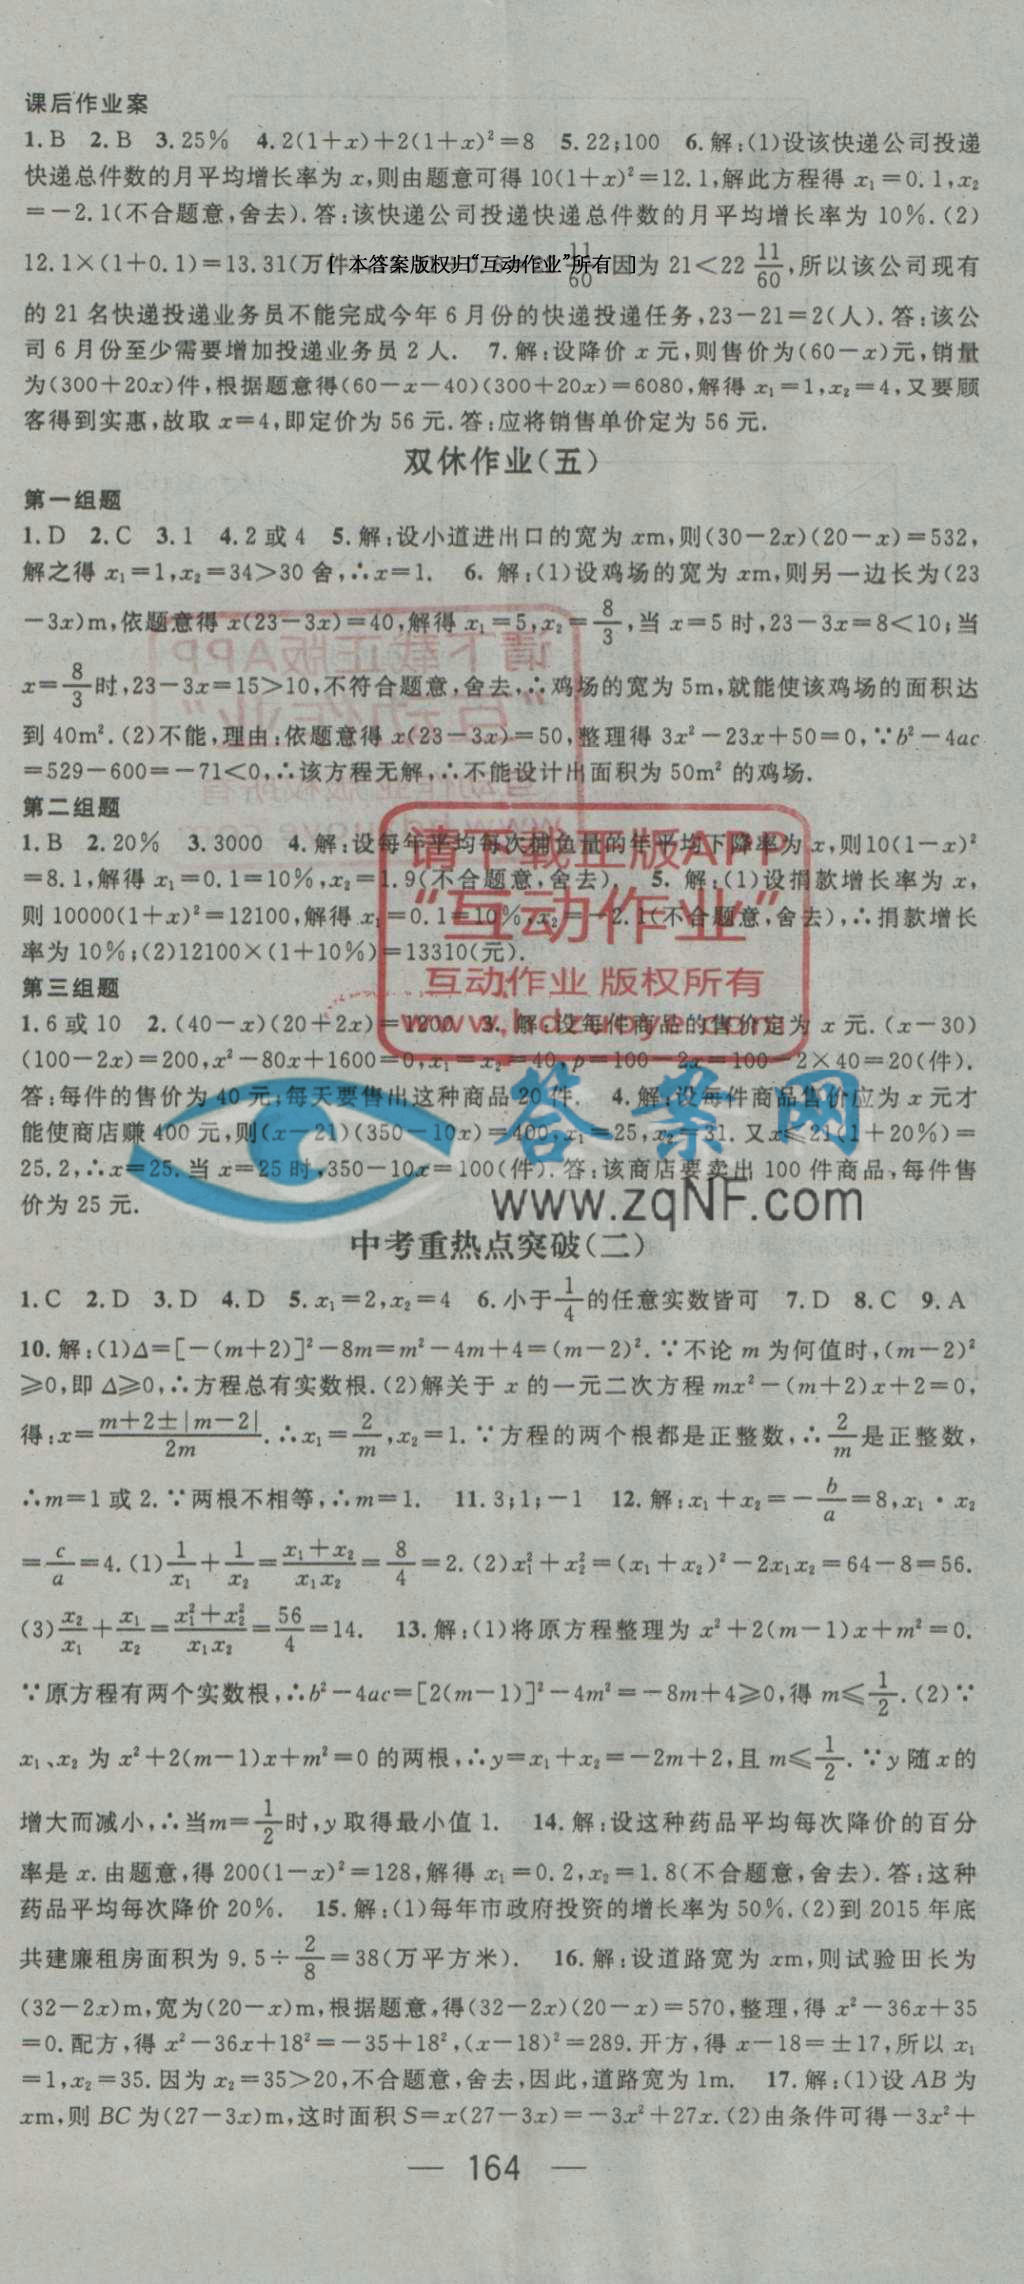 课后作业案
1.B 2.B 3.25% 4.2(1+x)+2(1+x)²=8 5.22;100 6.解:(1)设该快递公司投递
快递总件数的月平均增长率为 x,则由题意可得 10(1+x)²=12.1,解此方程得 x₁=0.1,x₂
=-2.1(不合题意,舍去).答:该快递公司投递快递总件数的月平均增长率为 10%.(2)
12.1×(1+0.1)=13.31(万件 [ 本答案版权归“互动作业”所有 ] 11/60 因为 21<22 11/60,所以该公司现有
的 21 名快递投递业务员不能完成今年 6 月份的快递投递任务,23-21=2(人).答:该公
司 6 月份至少需要增加投递业务员 2 人. 7.解:设降价 x 元,则售价为(60-x)元,销量
为(300+20x)件,根据题意得(60-x-40)(300+20x)=6080,解得 x₁=1,x₂=4,又要顾
客得到实惠,故取 x=4,即定价为 56 元.答:应将销售单价定为 56 元.
双休作业(五)
第一组题
1.D 2.C 3.1 4.2 或 4 5.解:设小道进出口的宽为 xm,则(30-2x)(20-x)=532,
解之得 x₁=1,x₂=34>30 舍,∴x=1. 6. 解:(1)设鸡场的宽为 xm,则另一边长为(23
-3x)m,依题意得 x(23-3x)=40,解得 x₁=5,x₂=8/3,当 x=5 时,23-3x=8<10;当
x=8/3时,23-3x=15>10,不符合题意,舍去,∴鸡场的宽为 5m,就能使该鸡场的面积达
到 40m².(2)不能,理由:依题意得 x(23-3x)=50,整理得 3x²-23x+50=0,∵b²-4ac
=529-600=-71<0,∴该方程无解,∴不能设计出面积为 50m² 的鸡场.
第二组题
1.B 2.20% 3.3000 4.解:设每年平均每次捕鱼量的年平均下降率为 x,则10(1-x)²
=8.1,解得 x₁=0.1=10%,x₂=1.9(不合题意,舍去). 5. 解:(1)设捐款增长率为 x,
则 10000(1+x)²=12100,解得 x₁=0.1=10%,x₂=-2.1(不合题意,舍去),∴捐款增长
率为 10%;(2)12100×(1+10%)=13310(元).
请下载正版APP
“互动作业”
互动作业 版权所有
www.hdzuoye.com
第三组题
1.6 或 10 2.(40-x)(20+2x)=1200 3. 解:设每件商品的售价定为 x 元.(x-30)
(100-2x)=200,x²-80x+1600=0,x₁=x₂=40,p=100-2x=100-2×40=20(件).
答:每件的售价为 40 元;每天要售出这种商品 20 件. 4.解:设每件商品售价应为 x 元才
能使商店赚 400 元,则(x-21)(350-10x)=400,x₁=25,x₂=31.又x≤21(1+20%)=
25.2,∴x=25.当 x=25 时,350-10x=100(件).答:该商店要卖出 100 件商品,每件售
价为 25 元.
答案网
www.zqNF.com
中考重热点突破(二)
1.C 2.D 3.D 4.D 5.x₁=2,x₂=4 6.小于1/4的任意实数皆可 7.D 8.C 9.A
10.解:(1)Δ=[-(m+2)]²-8m=m²-4m+4=(m-2)².∵不论 m 为何值时,(m-2)²
≥0,即 Δ≥0,∴方程总有实数根.(2)解关于 x 的一元二次方程 mx²-(m+2)x+2=0,
得:x=(m+2±|m-2|)/2m.∴x₁=2/m,x₂=1.∵方程的两个根都是正整数,∴2/m是正整数,
∴m=1 或 2.∵两根不相等,∴m=1. 11.3;1;-1 12.解:x₁+x₂=-b/a=8,x₁·x₂
=c/a=4.(1)1/x₁+1/x₂=(x₁+x₂)/x₁x₂=8/4=2.(2)x₁²+x₂²=(x₁+x₂)²-2x₁x₂=64-8=56.
(3)x₂/x₁+x₁/x₂=(x₁²+x₂²)/x₁x₂=56/4=14. 13.解:(1)将原方程整理为 x²+2(m-1)x+m²=0.
∵原方程有两个实数根,∴b²-4ac=[2(m-1)]²-4m²=-8m+4≥0,得 m≤1/2.(2)∵
x₁、x₂ 为 x²+2(m-1)x+m²=0 的两根,∴y=x₁+x₂=-2m+2,且 m≤1/2.∵y 随 x的
增大而减小,∴当m=1/2时,y 取得最小值 1. 14.解:设这种药品平均每次降价的百分
率是 x.由题意,得 200(1-x)²=128,解得 x₁=0.2,x₂=1.8(不合题意,舍去).答:这种
药品平均每次降价 20%. 15.解:(1)每年市政府投资的增长率为 50%.(2)到 2015 年底
共建廉租房面积为 9.5÷2/8=38(万平方米). 16.解:设道路宽为 xm,则试验田长为
(32-2x)m,宽为(20-x)m,根据题意,得(32-2x)(20-x)=570,整理,得 x²-36x+35
=0.配方,得 x²-36x+18²=-35+18²,(x-18)²=289.开方,得 x-18=±17,所以 x₁
=1,x₂=35.因为 x₂=35>20,不合题意,舍去,因此,道路宽为 1m. 17.解:(1)设 AB 为
xm,则 BC 为(27-3x)m,这时面积 S=x(27-3x)=-3x²+27x.(2)由条件可得-3x²+
— 164 —